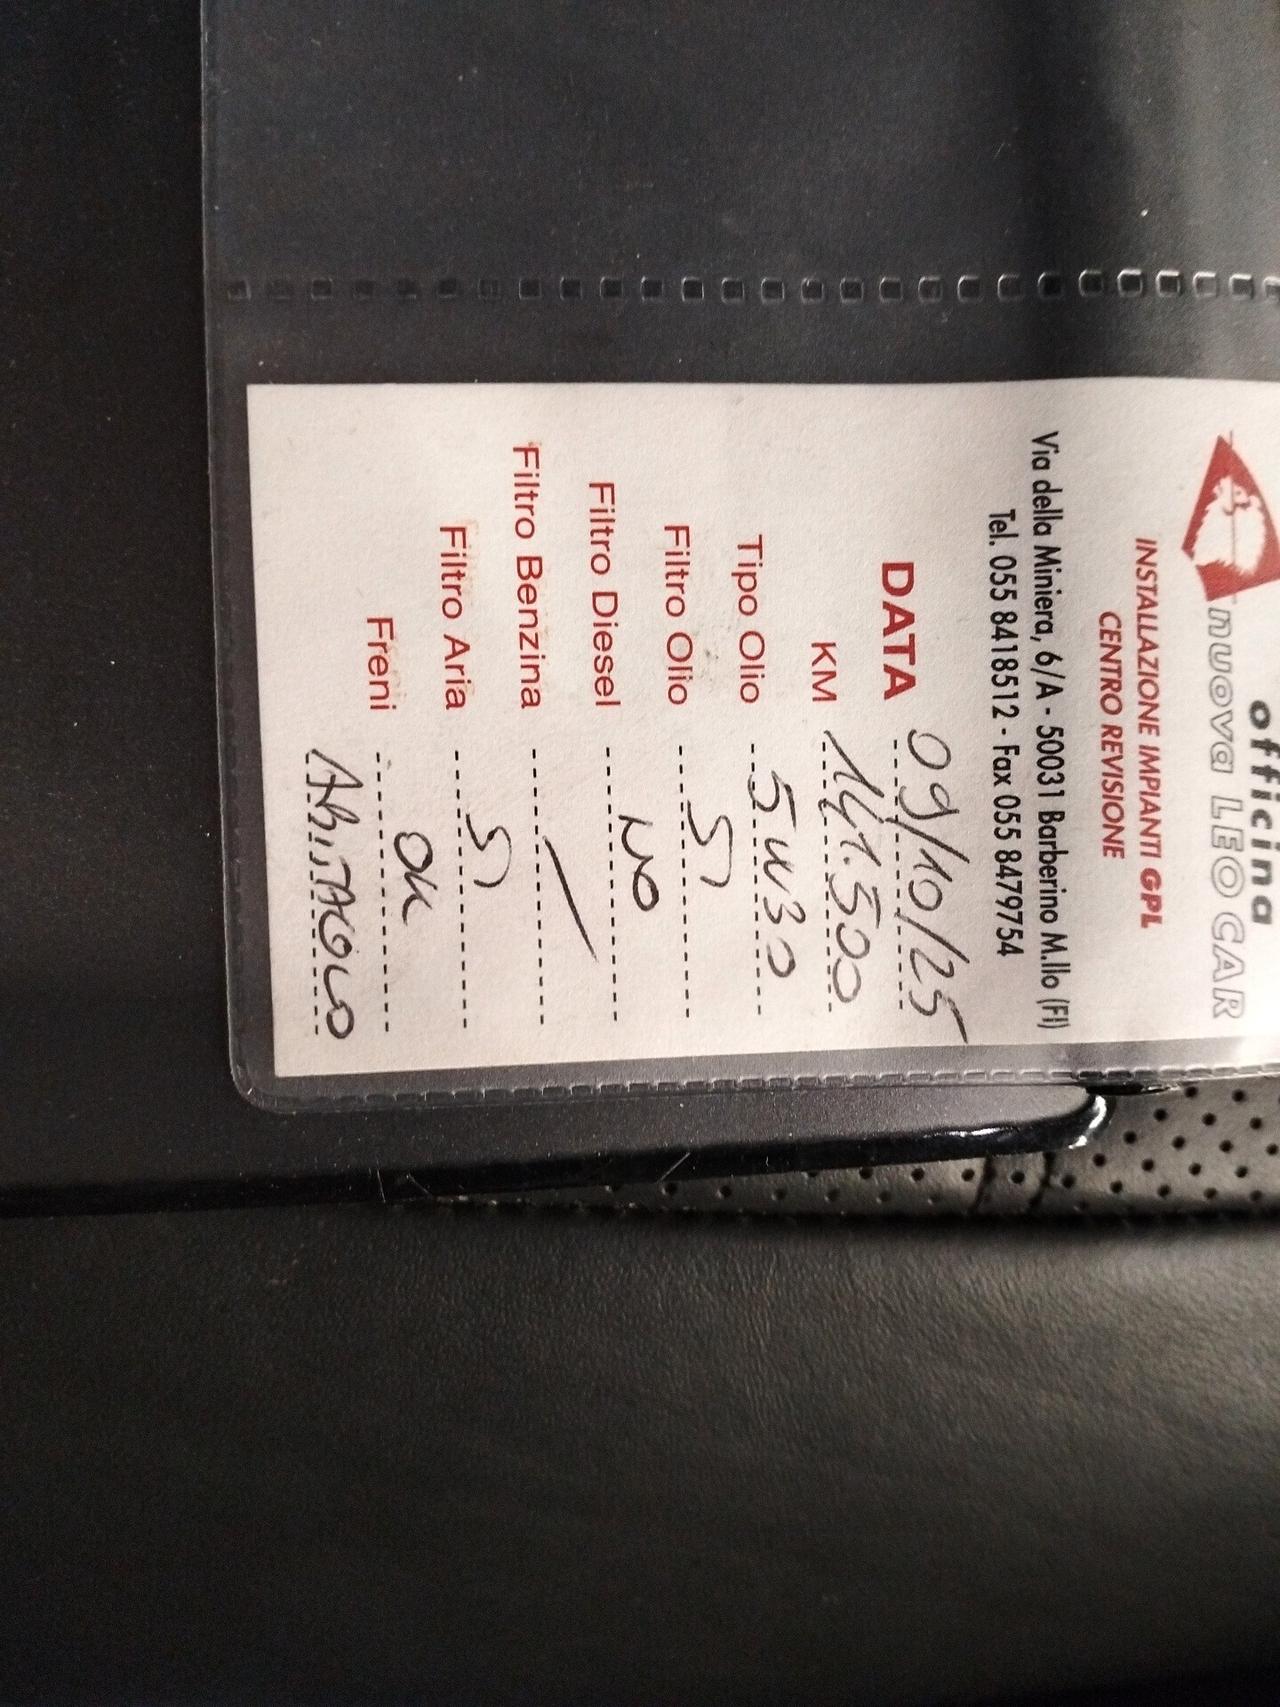 officina
nuova LEO CAR
INSTALLAZIONE IMPIANTI GPL
CENTRO REVISIONE
Via della Miniera, 6/A - 50031 Barberino M.llo (FI)
Tel. 055 8418512 - Fax 055 8479754
DATA 09/10/25
KM 141.500
Tipo Olio 5W30
Filtro Olio SI
Filtro Diesel NO
Filtro Benzina /
Filtro Aria SI
Freni OK
ABITACOLO